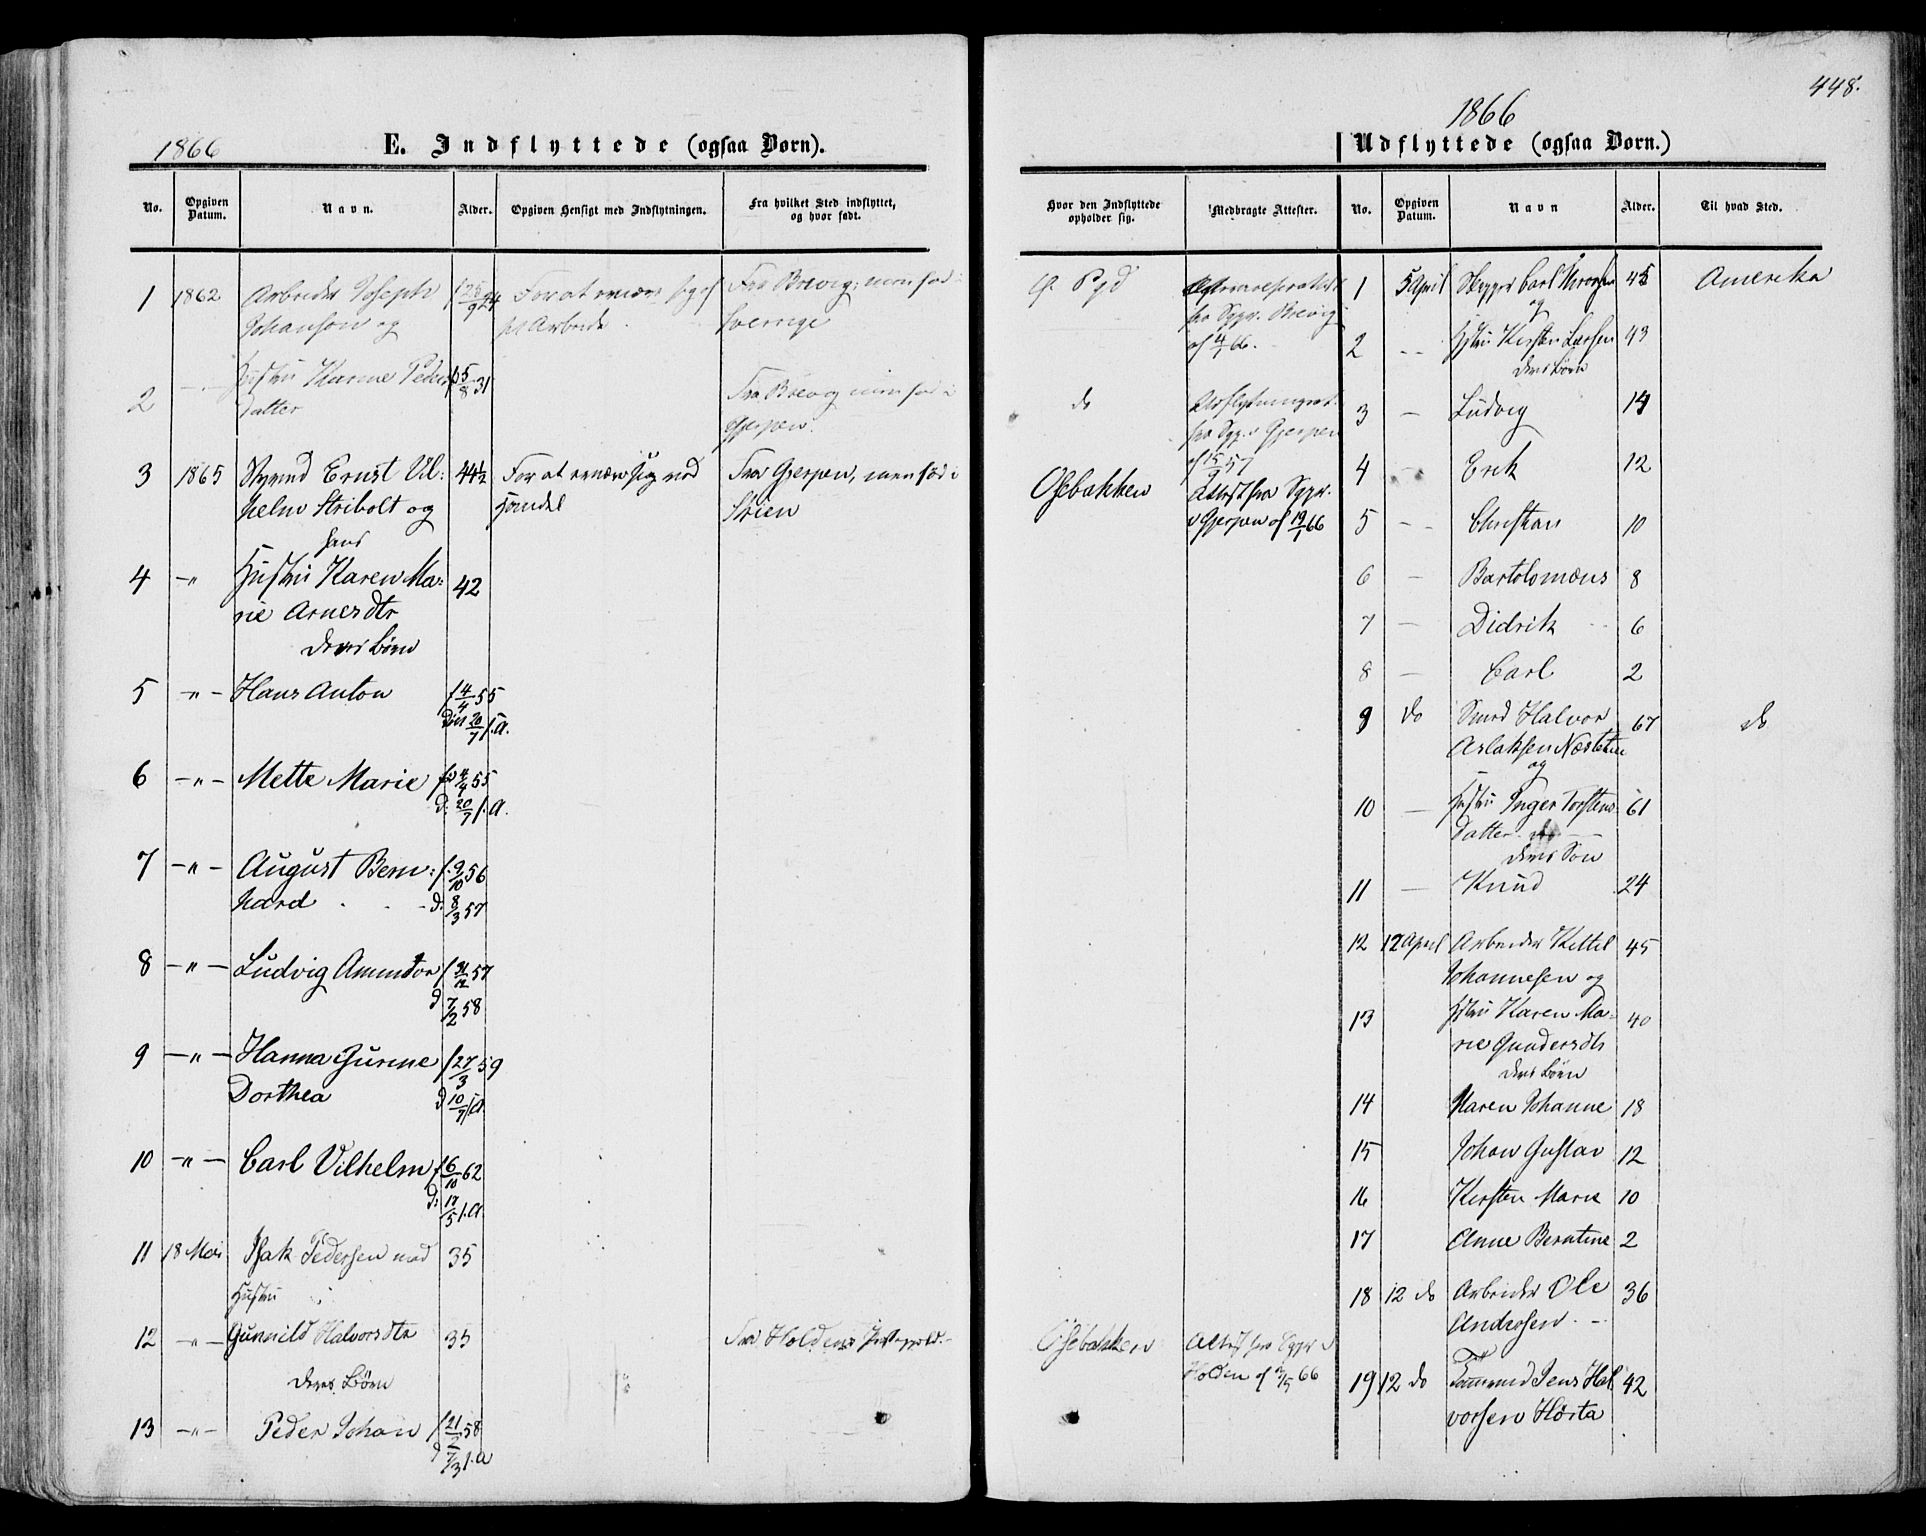 448.
1866
E. Indflyttede (ogsaa Børn).
No.
Opgiven Datum.
Navn.
Alder.
Opgiven Hensigt med Indflytningen.
Fra hvilket Sted indflyttet, og hvor født.
1 1862 Arbeider Joseph f 25/9 24 For at ernære sig af Fra Brevig, men fød i
Johanson og sit Arbeide. Sverrige
2 Hustru Karine Peders f 5/8 31 Fra Brevig men fød i
Datter Gjerpen.
3 1865 Styrmd Ernst Vil- 44½ For at ernære sig ved Fra Gjerpen, men fød i
helm Stribolt og Handel Skien
hans
4 -"- Hustru Karen Ma- 42
rie Arnesdtr
deres Børn
5 -"- Hans Anton f 4/4 55
Døbt 20/7 s.A.
6 -"- Mette Marie fø 4/4 55
d: 20/7 s.A.
7 -"- August Bern- f. 9/10 56
hard d: 8/3 57
8 -"- Ludvig Amandor f 31/12 57
d 7/2 58
9 -"- Hanna Gurine f 27/3 59
Dorthea d 10/7 s.A
10 -"- Carl Vilhelm f 6/10 62
d: 17/5 s.A.
11 18 Mai Isak Pedersen med 35
Hustru
12 -"- Gunnild Halvorsdtr 35 Fra Holdens Præstegjeld.
deres Børn
13 -"- Peder Johan f 21/2 58
d 7/3 s.A
1866
Udflyttede (ogsaa Børn.)
Hvor den Indflyttede opholder sig.
Medbragte Attester.
No.
Opgiven Datum.
Navn
Alder.
Til hvad Sted.
fra Sgpr. Brevig
af 4/1 66.
do Udflytningsat.
fra Sgp. i Gjerpen
af 15/9 57
Osebakken Attest fra Sgpr.
i Gjerpen af 19/1 66
Osebakken Attest fra Sgpr i
Holden af 2/5 66
1 5 April Carl 45 Amerika
og
2 -- Hstru Kirsten Larsen 43
deres Børn
3 - Ludvig 14
4 - Erik 12
5 -- Christian 10
6 - Bartolomæus 8
7 - Didrik 6
8 - Carl 2
9 do Smed Halvor 67 do
Aslaksen
og
10 - Hustru Inger Torstens- 61
Datter
deres Søn
11 - Knud 24
12 12 April Arbeider Kittil 45
Johannesen og
13 Hstru Karen Ma- 40
rie Gundersdtr
deres Børn
14 Maren Johanne 18
15 Johan Gustav 12
16 Kirsten Marie 10
17 Anne Berntine 2
18 12 do Arbeider Ole 36
Andersen
19 12 do Tømmermd Jens Hal 42
vorsen Hørta